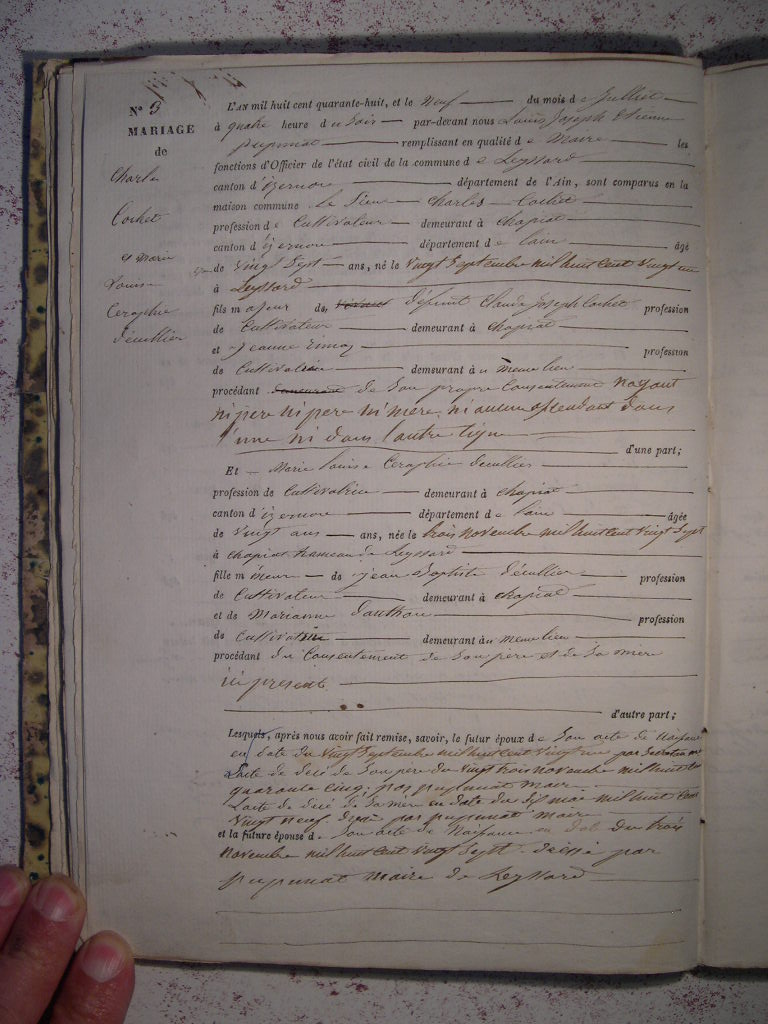 N° 9
MARIAGE
de
Charles
Cochet
et Marie
Louise
Ceraphie
Décullier
L'AN mil huit cent quarante-huit, et le Neuf du mois de Juillet
à quatre heure du Soir par-devant nous Louis Joseph Etienne
pupunat remplissant en qualité de Maire les
fonctions d'Officier de l'état civil de la commune de Leyssard
canton d'izernore département de l'Ain, sont comparus en la
maison commune le Sieur Charles Cochet
profession de Cultivateur demeurant à Chapiat
canton d'izernore département de lain âgé
de Vingt Sept ans, né le Vingt Septembre mil huit Cent Vingt un
à Leyssard
fils majeur de défunt Claude Joseph Cochet profession
de Cultivateur demeurant à Chapiat
et Jeanne profession
de Cultivatrice demeurant au meme lieu
procédant de Son propre Consentement nayant
ni pere ni pere ni mere, ni aucun assendant dans
l'une ni dans l'autre ligne
d'une part;
Et Marie Louise Ceraphie Decullier
profession de Cultivatrice demeurant à Chapiat
canton d'izernore département de lain âgée
de Vingt ans ans, née le trois Novembre mil huit Cent Vingt Sept
à Chapiat hameau de Leyssard
fille mineure de jean Baptiste Décullier profession
de Cultivateur demeurant à Chapiat
et de Marianne profession
de Cultivatrice demeurant au meme lieu
procédant du Consentement de Son père et de Sa mère
ici presents
d'autre part;
Lesquels, après nous avoir fait remise, savoir, le futur époux de Son acte de Naissance
en date du Vingt Septembre mil huit Cent Vingt un par
Lacte de de Son pere du Vingt trois Novembre mil huit Cent
quarante Cinq, par pupunat maire
Lacte de de Sa mère en date du dix mai mil huit Cent
Vingt neuf par pupunat maire
et la future épouse d. Son acte de Naissance en date Du trois
Novembre mil huit Cent Vingt Sept dressé par
pupunat maire de Leyssard